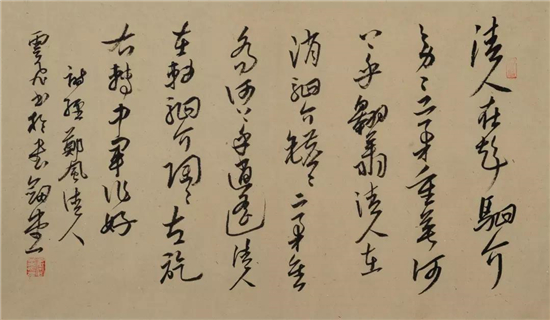 清人在彭駟介
旁〻二矛重英河
上乎翱翔清人在
消駟介〻二矛重
喬河上乎逍遙清人
在軸駟介陶〻左旋
右中軍作好
詩經鄭風清人
雲書於堂